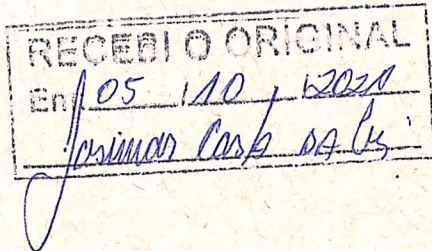 RECEBI O ORIGINAL
Em 05 / 10 / 2021
Josimar Costa DA